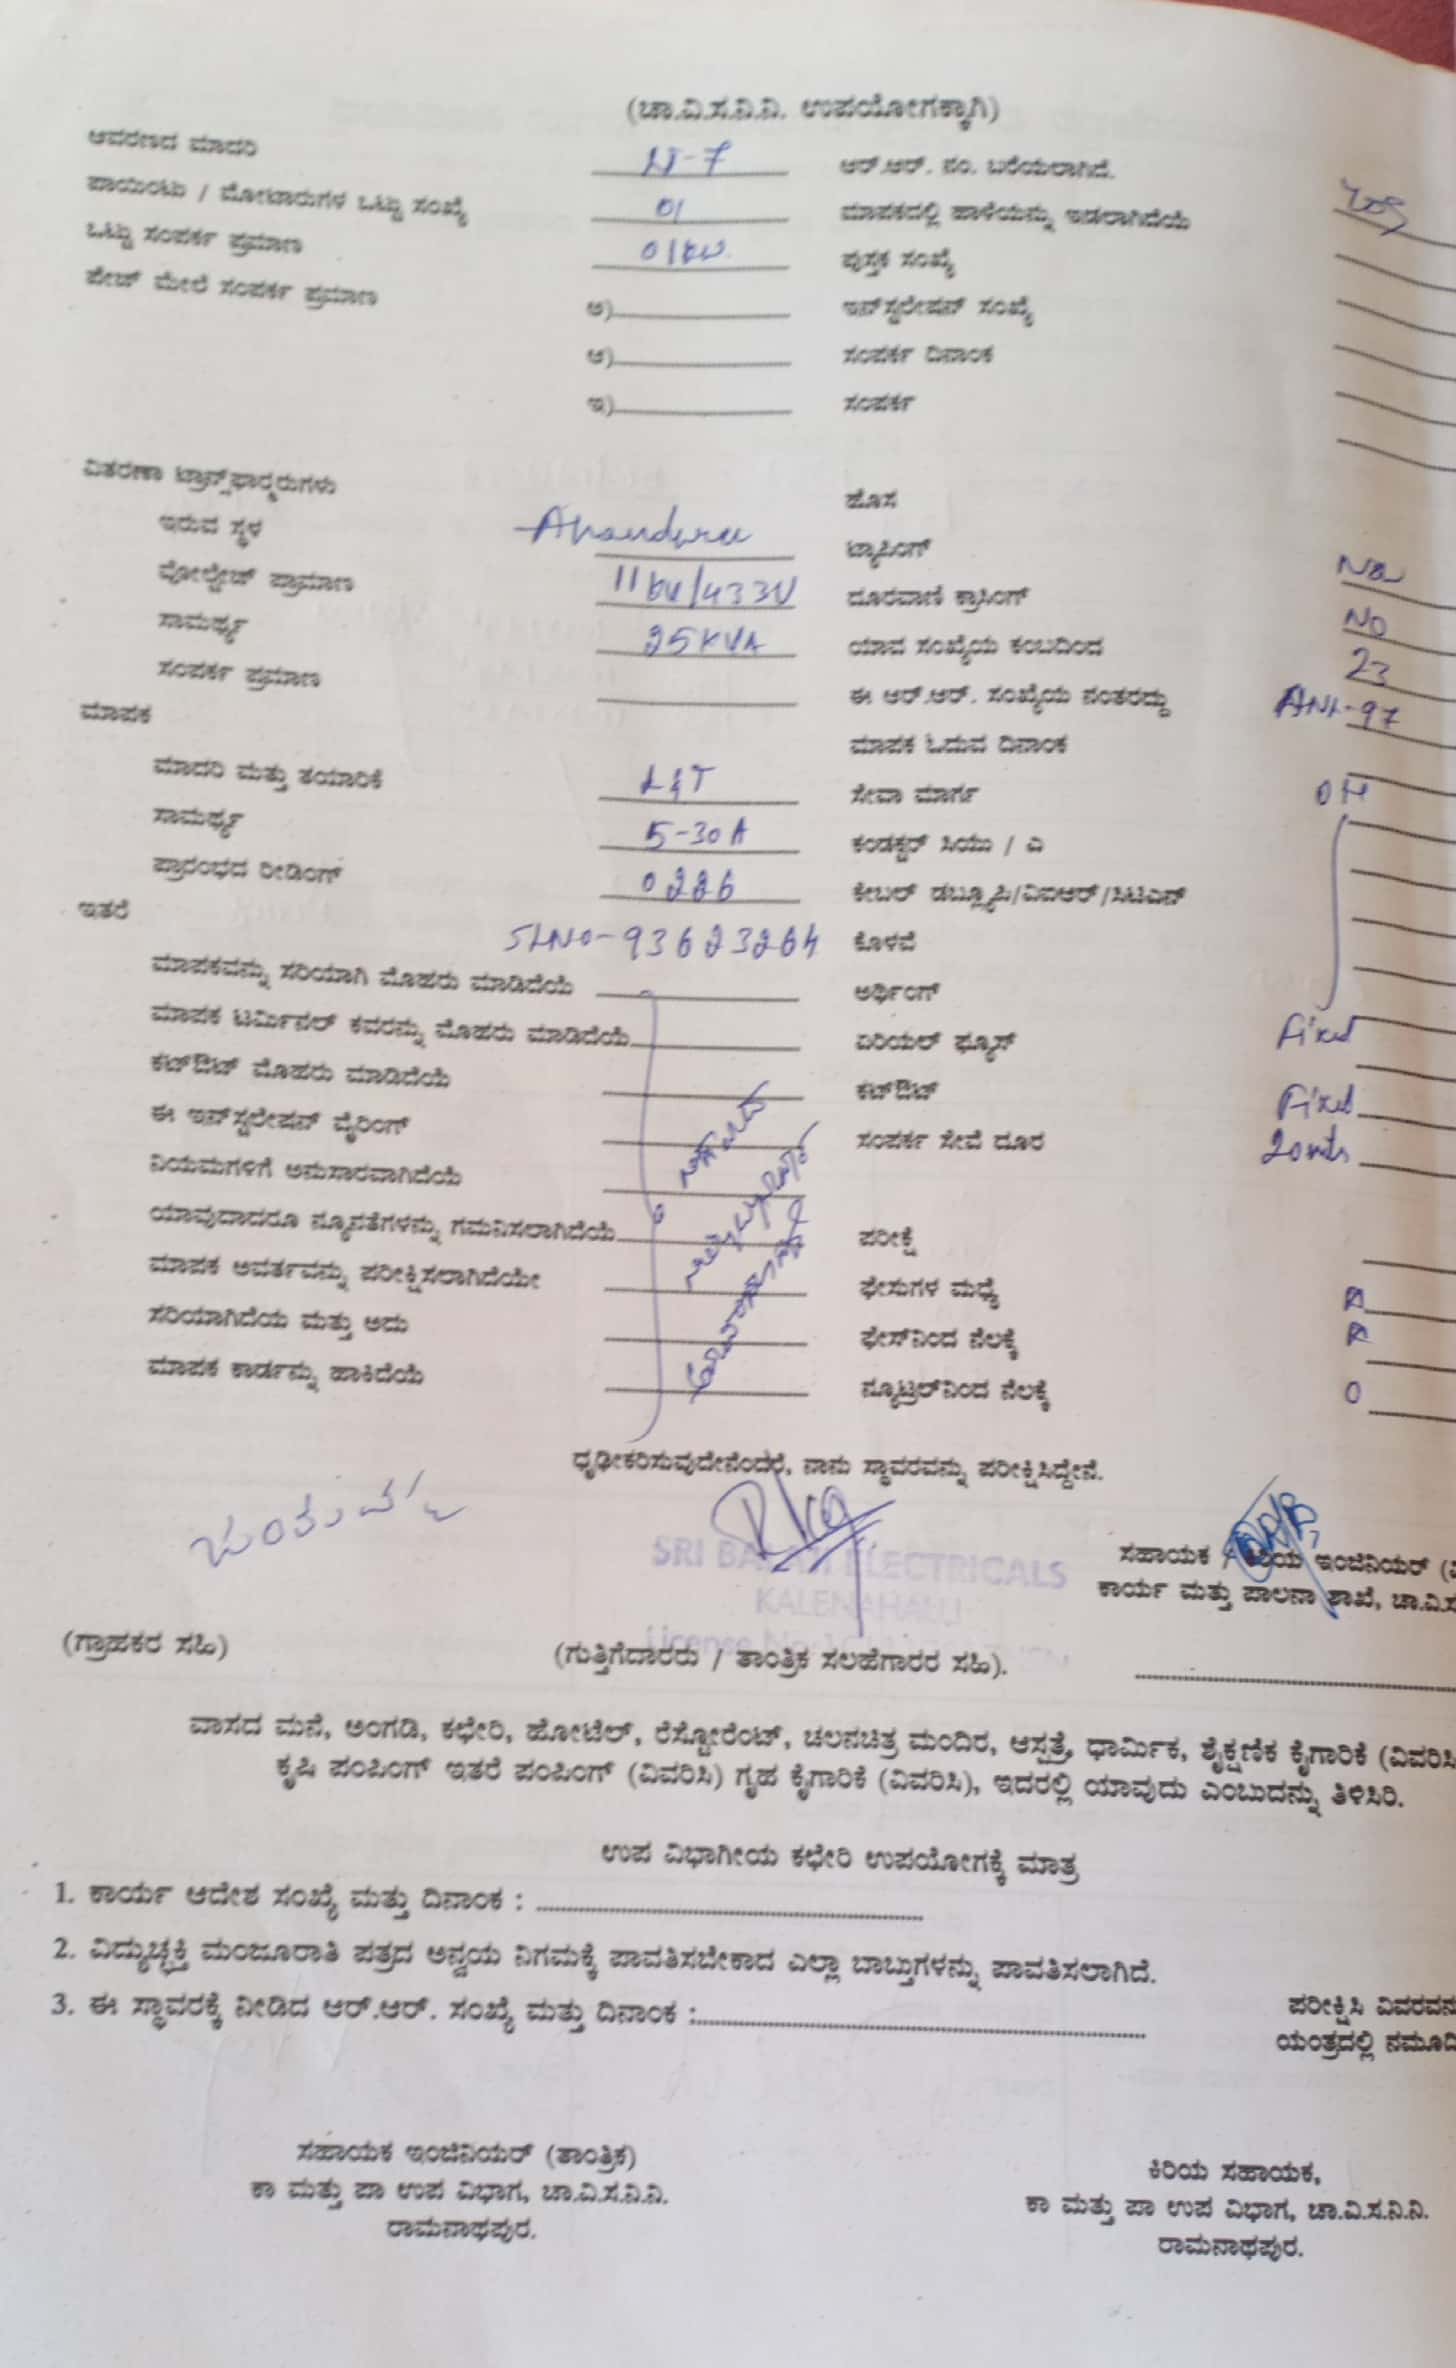 (ಚಾ.ವಿ.ಸ.ನಿ.ನಿ. ಉಪಯೋಗಕ್ಕಾಗಿ)
ಆವರಣದ ಮಾದರಿ LT-7 ಆರ್.ಆರ್. ನಂ. ಬರೆಯಲಾಗಿದೆ. Yes
ಪಾಯಿಂಟು / ಮೋಟಾರುಗಳ ಒಟ್ಟು ಸಂಖ್ಯೆ 01 ಮಾಪಕದಲ್ಲಿ ಹಾಳೆಯನ್ನು ಇಡಲಾಗಿದೆಯೆ
ಒಟ್ಟು ಸಂಪರ್ಕ ಪ್ರಮಾಣ 01kw. ಪುಸ್ತಕ ಸಂಖ್ಯೆ
ಪೇಜ್ ಮೇಲೆ ಸಂಪರ್ಕ ಪ್ರಮಾಣ ಅ) ಇನ್‌ಸ್ಟಲೇಷನ್ ಸಂಖ್ಯೆ
ಆ) ಸಂಪರ್ಕ ದಿನಾಂಕ
ಇ) ಸಂಪರ್ಕ
ವಿತರಣಾ ಟ್ರಾನ್ಸ್‌ಫಾರ್ಮರುಗಳು ಹೊಸ
ಇರುವ ಸ್ಥಳ ಟ್ಯಾಪಿಂಗ್ No
ವೋಲ್ಟೇಜ್ ಪ್ರಾಮಾಣ 11kv/433V ದೂರವಾಣಿ ಕ್ರಾಸಿಂಗ್ NO
ಸಾಮರ್ಥ್ಯ 25KVA ಯಾವ ಸಂಖ್ಯೆಯ ಕಂಬದಿಂದ 23
ಸಂಪರ್ಕ ಪ್ರಮಾಣ ಈ ಆರ್.ಆರ್. ಸಂಖ್ಯೆಯ ನಂತರದ್ದು ANL-97
ಮಾಪಕ ಮಾಪಕ ಓದುವ ದಿನಾಂಕ
ಮಾದರಿ ಮತ್ತು ತಯಾರಿಕೆ L&T ಸೇವಾ ಮಾರ್ಗ OH
ಸಾಮರ್ಥ್ಯ 5-30A ಕಂಡಕ್ಟರ್ ಸಿಯು / ಎ
ಪ್ರಾರಂಭದ ರೀಡಿಂಗ್ 0226 ಕೇಬಲ್ ಡಬ್ಲ್ಯೂಪಿ/ವಿಐಆರ್/ಸಿಟಿಎಸ್
ಇತರೆ SLNO-93623264 ಕೊಳವೆ
ಮಾಪಕವನ್ನು ಸರಿಯಾಗಿ ಮೊಹರು ಮಾಡಿದೆಯೆ ಅರ್ಥಿಂಗ್
ಮಾಪಕ ಟರ್ಮಿನಲ್ ಕವರನ್ನು ಮೊಹರು ಮಾಡಿದೆಯೆ ಏರಿಯಲ್ ಫ್ಯೂಸ್ Fixed
ಕಟ್‌ಔಟ್ ಮೊಹರು ಮಾಡಿದೆಯೆ ಕಟ್‌ಔಟ್ Fixed
ಈ ಇನ್‌ಸ್ಟಲೇಷನ್ ವೈರಿಂಗ್ ಸಂಪರ್ಕ ಸೇವೆ ದೂರ 20mts
ನಿಯಮಗಳಿಗೆ ಅನುಸಾರವಾಗಿದೆಯೆ
ಯಾವುದಾದರೂ ನ್ಯೂನತೆಗಳನ್ನು ಗಮನಿಸಲಾಗಿದೆಯೆ ಪರೀಕ್ಷೆ
ಮಾಪಕ ಅವರ್ತವನ್ನು ಪರೀಕ್ಷಿಸಲಾಗಿದೆಯೇ ಫೇಸುಗಳ ಮಧ್ಯೆ
ಸರಿಯಾಗಿದೆಯ ಮತ್ತು ಅದು ಫೇಸ್‌ನಿಂದ ನೆಲಕ್ಕೆ
ಮಾಪಕ ಕಾರ್ಡನ್ನು ಹಾಕಿದೆಯೆ ನ್ಯೂಟ್ರಲ್‌ನಿಂದ ನೆಲಕ್ಕೆ 0
ಧೃಢೀಕರಿಸುವುದೇನೆಂದರೆ, ನಾನು ಸ್ಥಾವರವನ್ನು ಪರೀಕ್ಷಿಸಿದ್ದೇನೆ.
SRI BALAJI ELECTRICALS
KALENAHALLI
License No
ಸಹಾಯಕ / ಕಿರಿಯ ಇಂಜಿನಿಯರ್
ಕಾರ್ಯ ಮತ್ತು ಪಾಲನಾ ಶಾಖೆ, ಚಾ.ವಿ.ಸ
(ಗ್ರಾಹಕರ ಸಹಿ) (ಗುತ್ತಿಗೆದಾರರು / ತಾಂತ್ರಿಕ ಸಲಹೆಗಾರರ ಸಹಿ).
ವಾಸದ ಮನೆ, ಅಂಗಡಿ, ಕಛೇರಿ, ಹೋಟೆಲ್, ರೆಸ್ಟೋರೆಂಟ್, ಚಲನಚಿತ್ರ ಮಂದಿರ, ಆಸ್ಪತ್ರೆ, ಧಾರ್ಮಿಕ, ಶೈಕ್ಷಣಿಕ ಕೈಗಾರಿಕೆ (ವಿವರಿಸಿ
ಕೃಷಿ ಪಂಪಿಂಗ್ ಇತರೆ ಪಂಪಿಂಗ್ (ವಿವರಿಸಿ) ಗೃಹ ಕೈಗಾರಿಕೆ (ವಿವರಿಸಿ), ಇದರಲ್ಲಿ ಯಾವುದು ಎಂಬುದನ್ನು ತಿಳಿಸಿರಿ.
ಉಪ ವಿಭಾಗೀಯ ಕಛೇರಿ ಉಪಯೋಗಕ್ಕೆ ಮಾತ್ರ
1. ಕಾರ್ಯ ಆದೇಶ ಸಂಖ್ಯೆ ಮತ್ತು ದಿನಾಂಕ :
2. ವಿದ್ಯುಚ್ಛಕ್ತಿ ಮಂಜೂರಾತಿ ಪತ್ರದ ಅನ್ವಯ ನಿಗಮಕ್ಕೆ ಪಾವತಿಸಬೇಕಾದ ಎಲ್ಲಾ ಬಾಬ್ತುಗಳನ್ನು ಪಾವತಿಸಲಾಗಿದೆ.
3. ಈ ಸ್ಥಾವರಕ್ಕೆ ನೀಡಿದ ಆರ್.ಆರ್. ಸಂಖ್ಯೆ ಮತ್ತು ದಿನಾಂಕ :
ಪರೀಕ್ಷಿಸಿ ವಿವರವನ
ಯಂತ್ರದಲ್ಲಿ ನಮೂದಿ
ಸಹಾಯಕ ಇಂಜಿನಿಯರ್ (ತಾಂತ್ರಿಕ)
ಕಾ ಮತ್ತು ಪಾ ಉಪ ವಿಭಾಗ, ಚಾ.ವಿ.ಸ.ನಿ.ನಿ.
ರಾಮನಾಥಪುರ.
ಕಿರಿಯ ಸಹಾಯಕ,
ಕಾ ಮತ್ತು ಪಾ ಉಪ ವಿಭಾಗ, ಚಾ.ವಿ.ಸ.ನಿ.ನಿ.
ರಾಮನಾಥಪುರ.